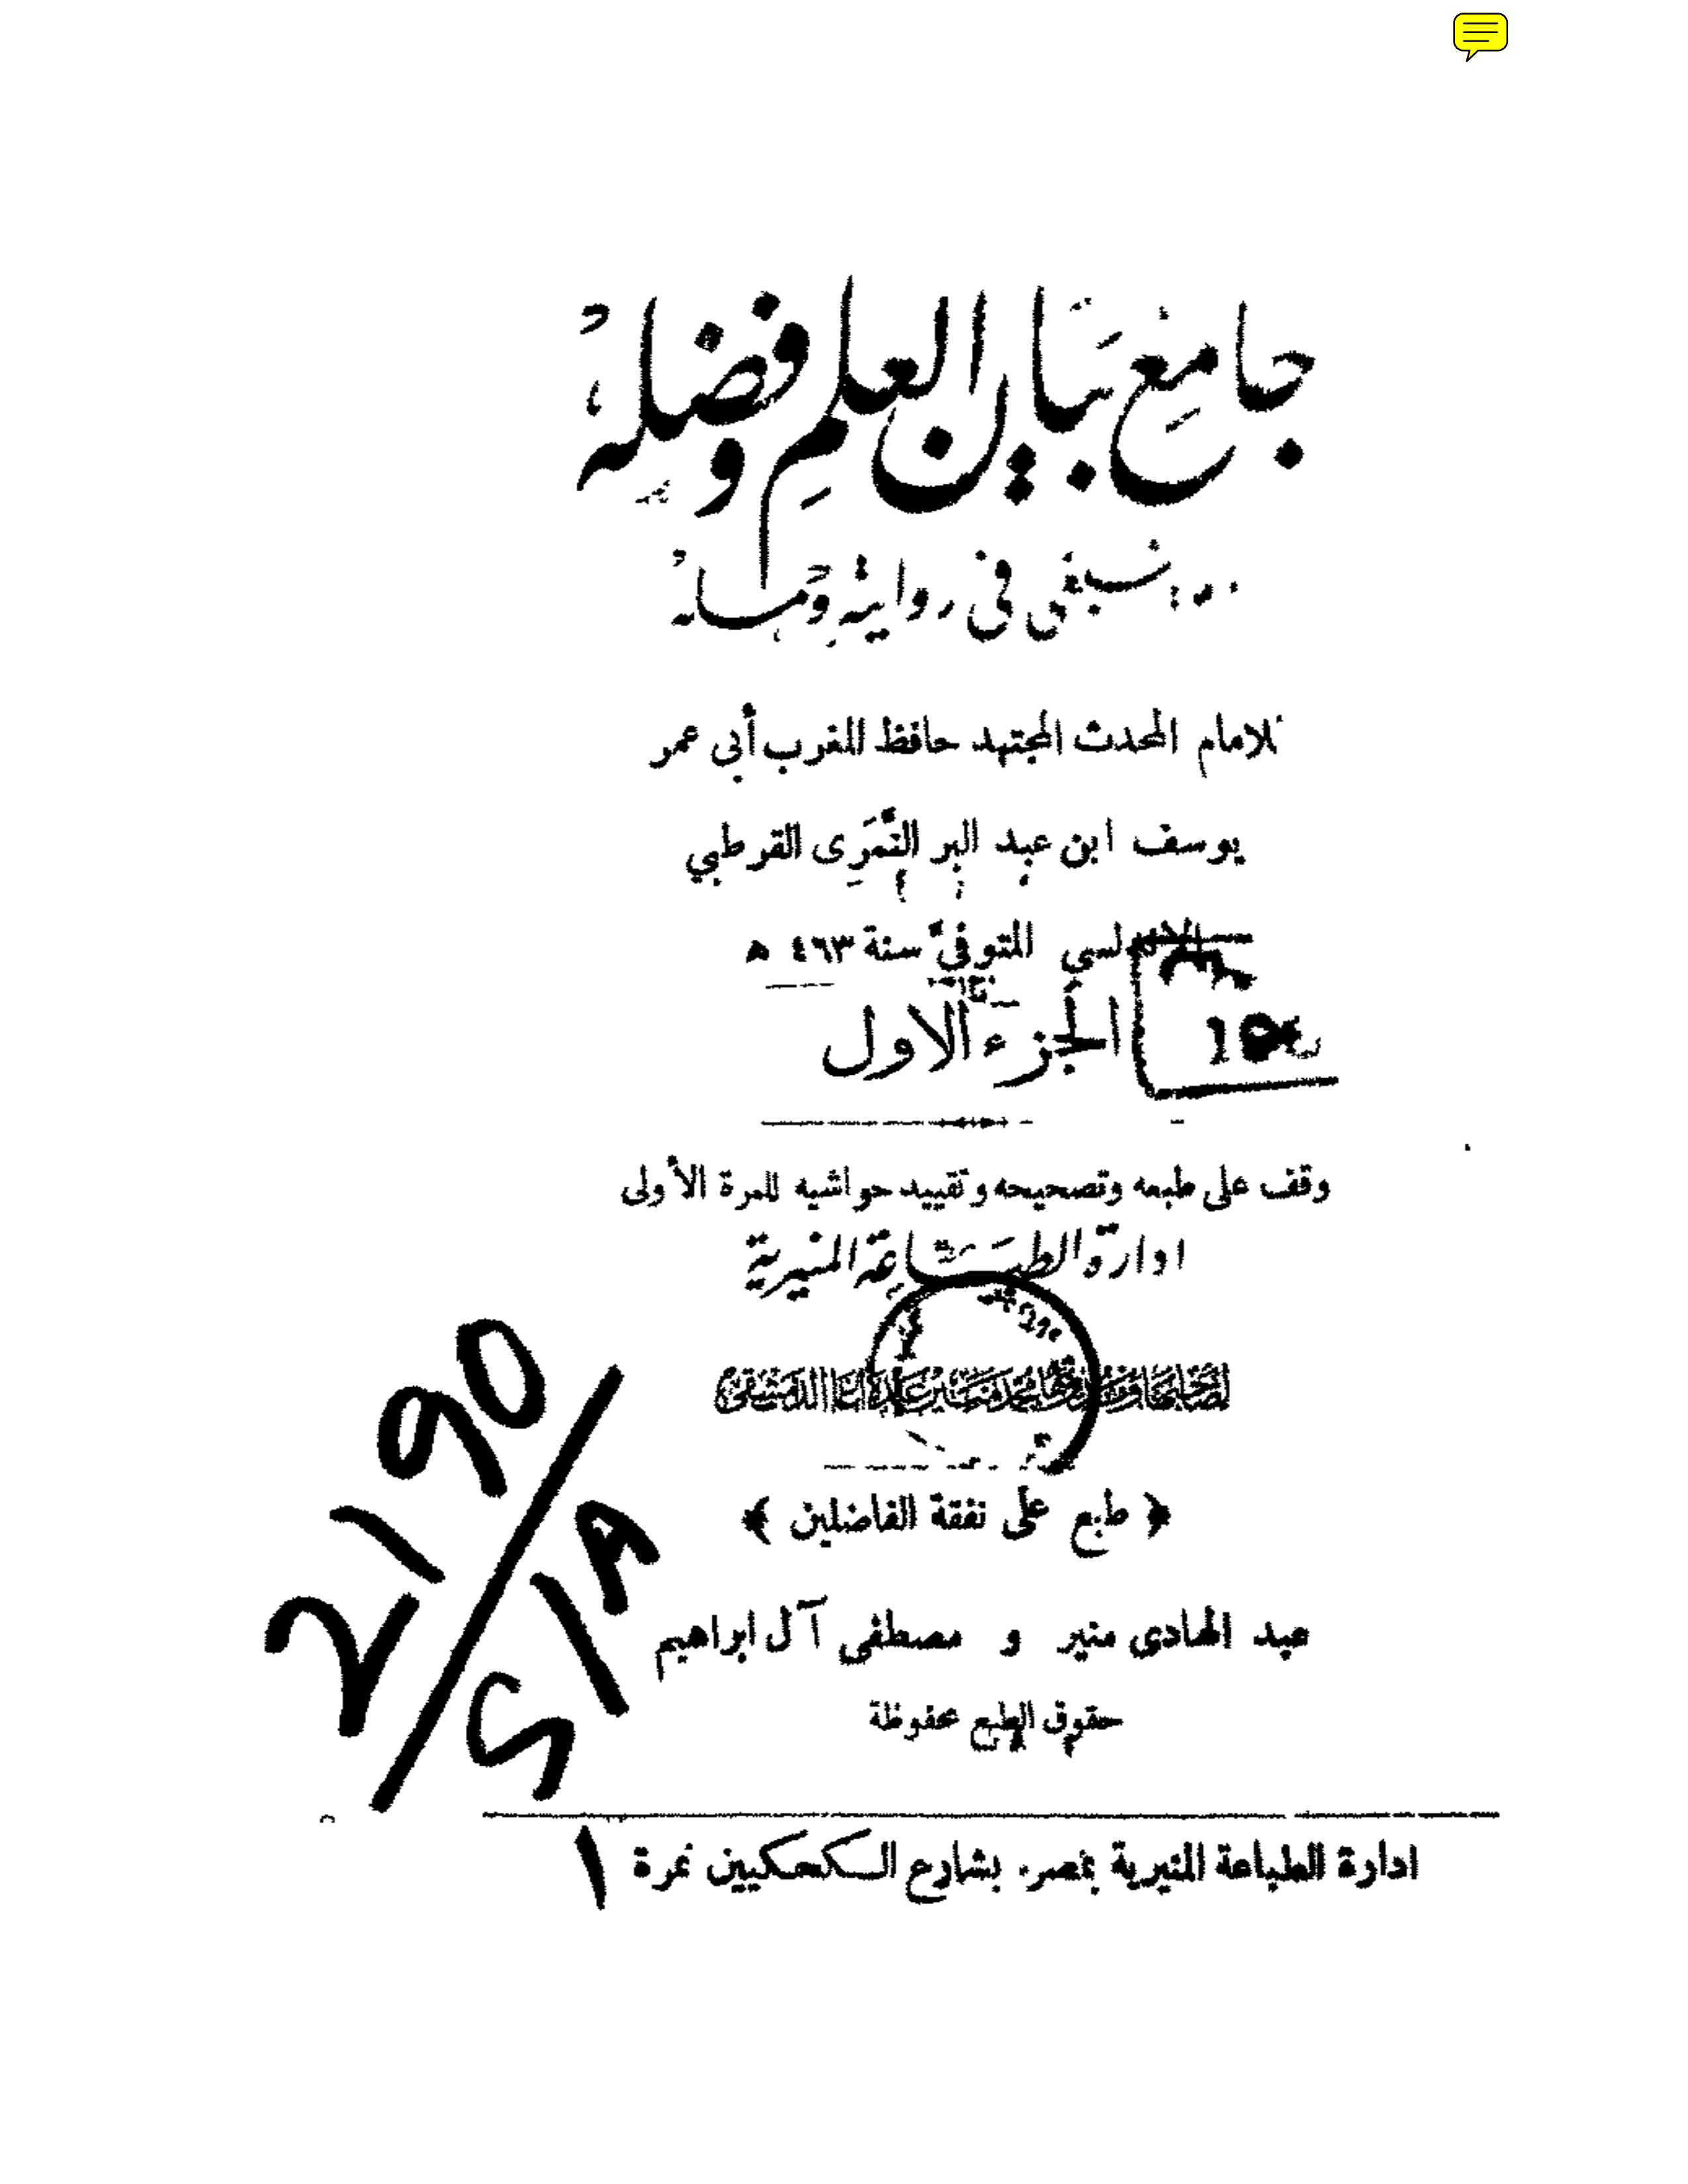 جامع بيان العلم وفضله
وما ينبغي في روايته وحمله
للامام المحدث المجتهد حافظ المغرب أبي عمر
يوسف ابن عبد البر النَّمَرِى القرطبي
الاندلسي المتوفىَّ سنة ٤٦٣ ه
الجزء الاول
وقف على طبعه وتصحيحه وتقييد حواشيه للمرة الأولى
ادارة الطباعة المنيرية
لصاحبها ومديرها محمد منير عبده اغا الدمشقى
﴿ طبع على نفقة الفاضلين ﴾
عبد الهادى منير و مصطفى آل ابراهيم
حقوق الطبع محفوظة
2190
ادارة الطباعة المنيرية بمصر. بشارع الكحكيين نمرة ١